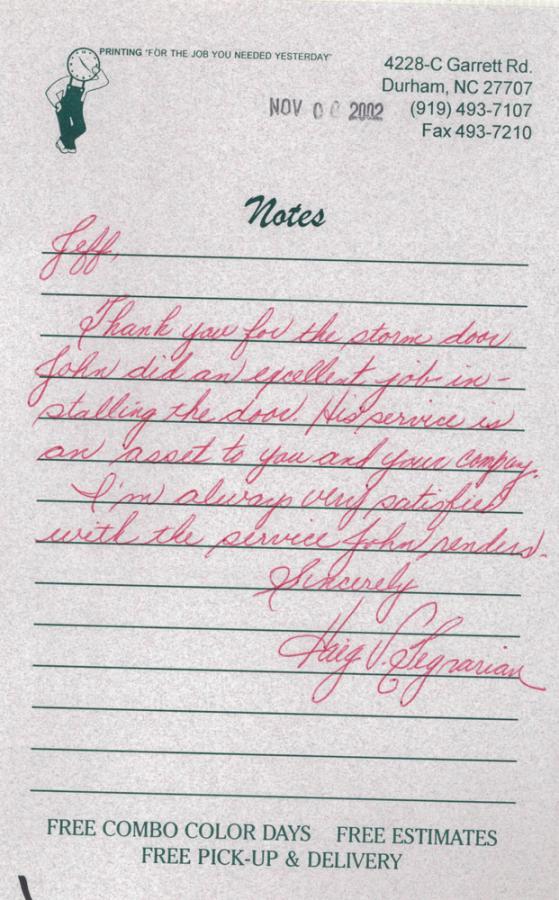 PRINTING "FOR THE JOB YOU NEEDED YESTERDAY"
4228-C Garrett Rd.
Durham, NC 27707
(919) 493-7107
Fax 493-7210
NOV 2002
Notes
Jeff,
Thank you for the storm door
John did an excellent job in-
stalling the door. His service is
an asset to you and your compay.
I'm always very satisfied
with the service John renders.
Sincerely
Haig V.
FREE COMBO COLOR DAYS FREE ESTIMATES
FREE PICK-UP & DELIVERY